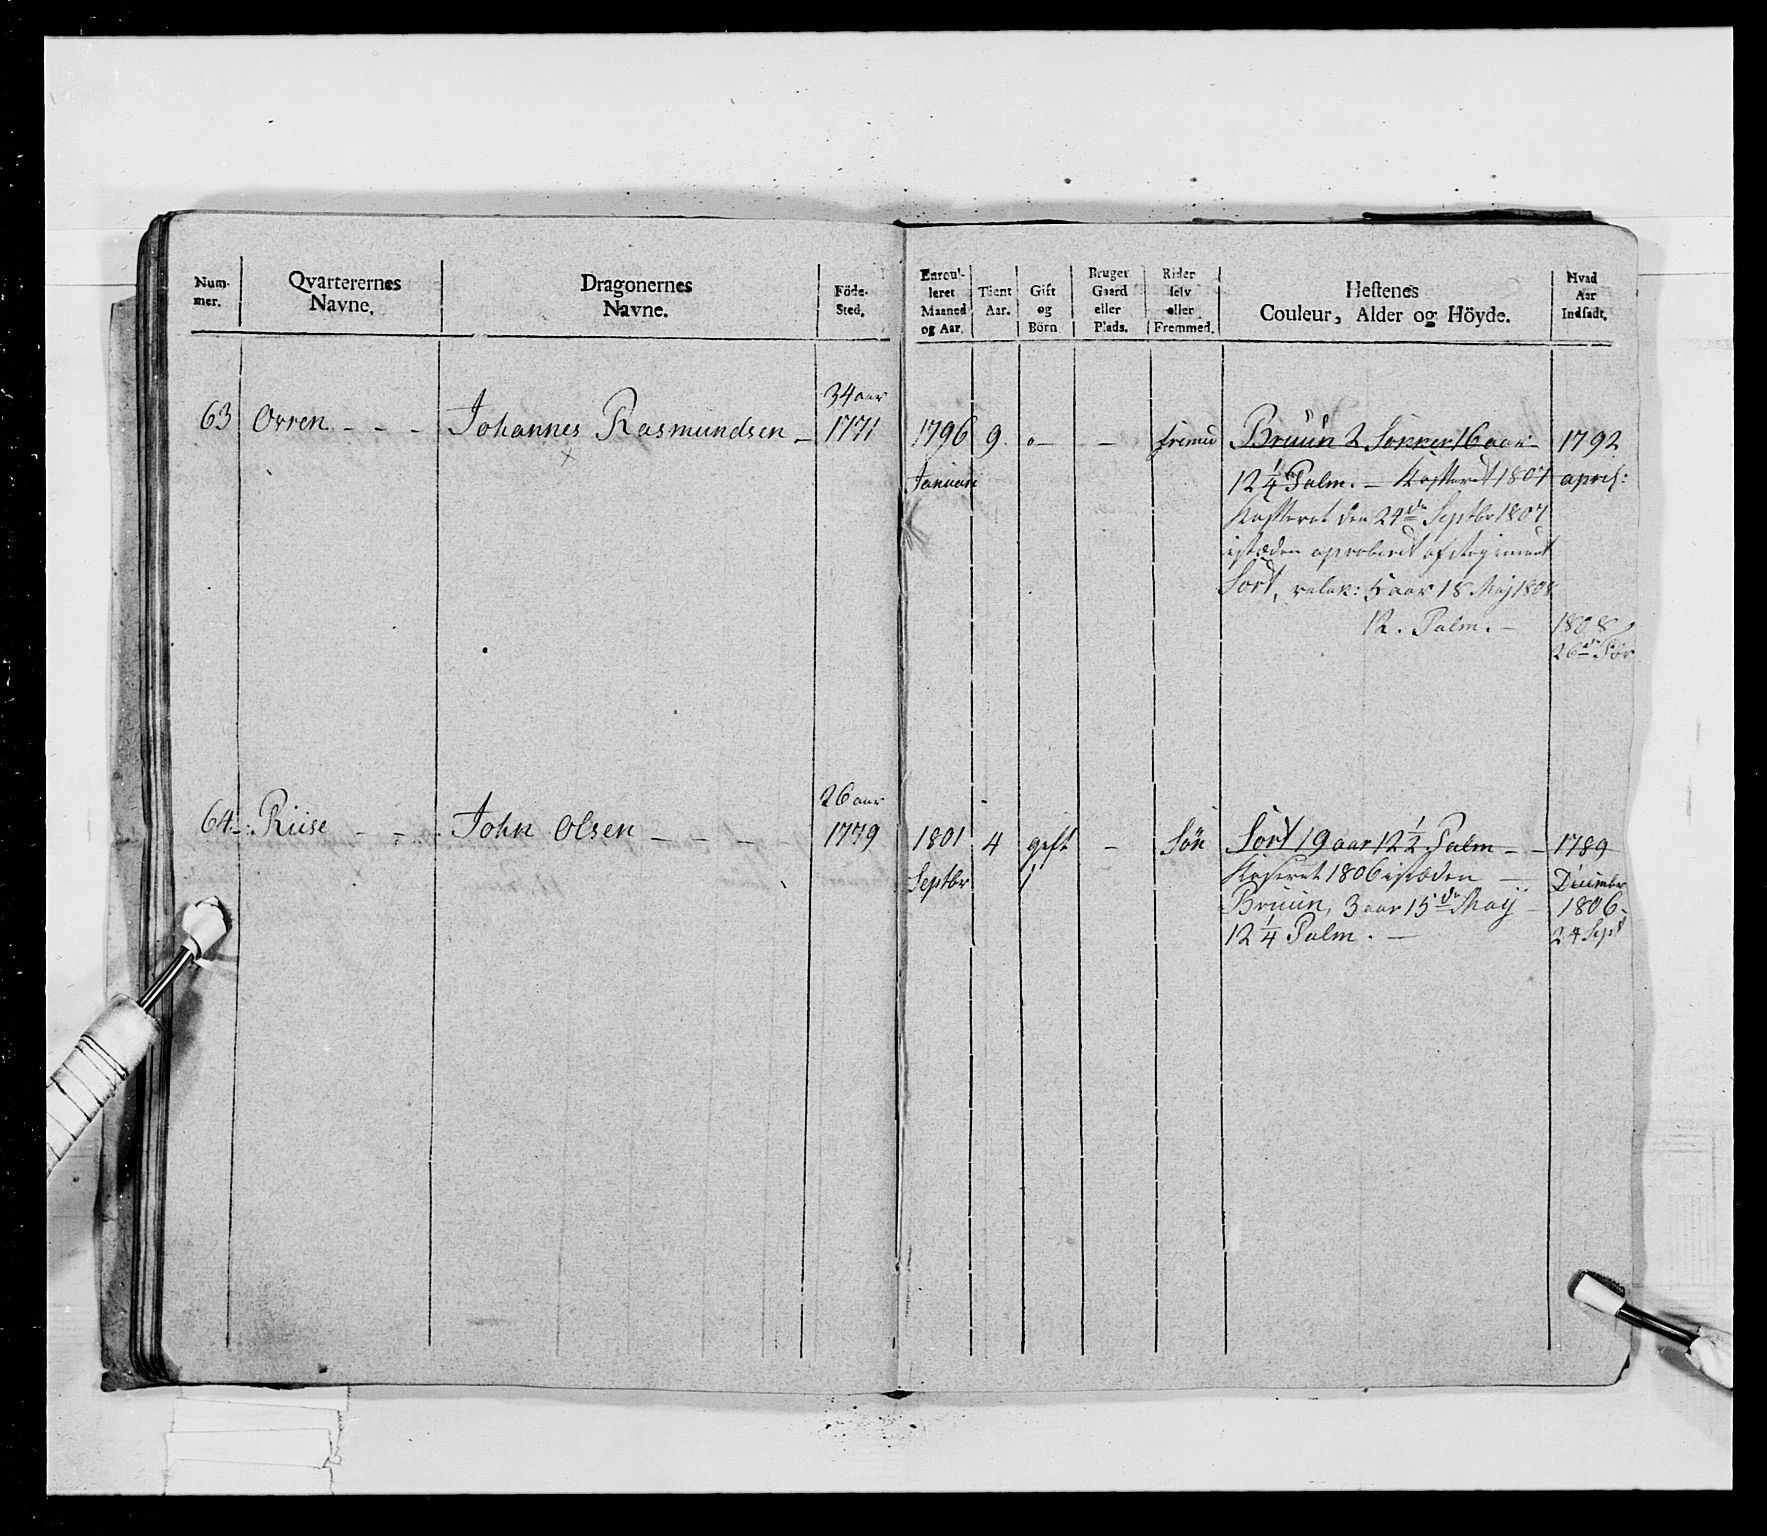 Num-
mer.
Qvarterernes
Navne.
Dragonernes
Navne.
Föde-
Sted.
Enroul-
leret
Maaned
og Aar.
Tient
Aar.
Gift
og
Börn
Bruger
Gaard
eller
Plads.
Rider
selv
eller
Fremmed.
Hestenes
Couleur, Alder og Höyde.
Hvad
Aar
Indsadt.
34 aar
63 Orren - - - Johannes Rasmundsen - 1771 1796 9. o - - fremd Bruun 2 Sokker 16 aar 1792
Januari 12 1/4 Palm. - Kasseret 1807 april:
Kasseret den 24de Septbr 1807
istæden aproberet af Regiment
Sort, 5 aar 18 Maj 1808
12. Palm. - 1808
26de
26 aar
64 Riise - - John Olsen - - - 1779 1801 4 gift - Søn Sort 19 aar 12 1/2 Palm - - 1789
Septbr Kaseret 1806 istæden - Decimbr
Bruun, 3 aar 15de Maij - 1806 -
12 1/4 Palm. - 24 Sept